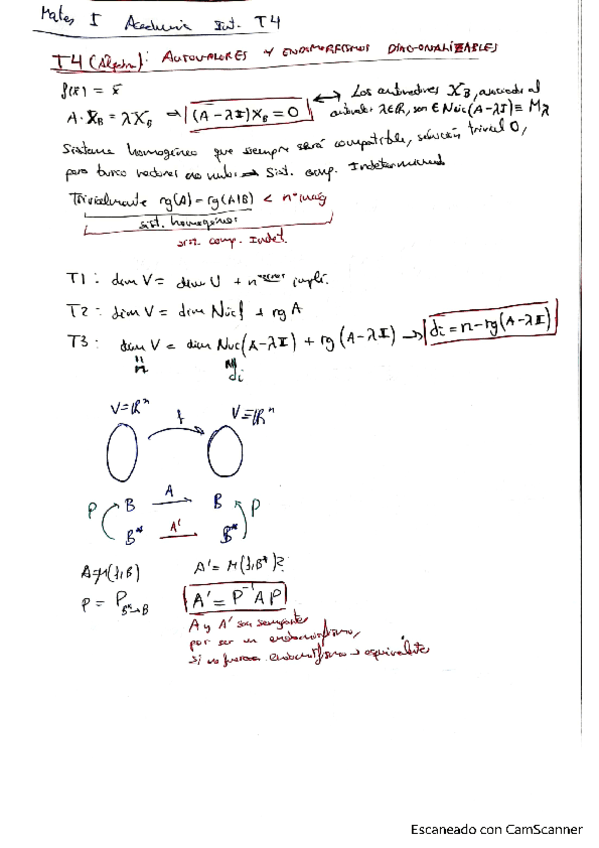 Mates I Academia Int. T4
T4 (Álgebra): AUTOVALORES Y ENDOMORFISMOS DIAGONALIZABLES
A · X_B = λX_B → (A − λI)X_B = 0 ↔ Los autovectores X_B, asociado al
autovalor λ∈R, son ∈ Núc(A−λI) ≡ M_λ
Sistema homogéneo que siempre será compatible, solución trivial 0,
para busco vectores no nulos → Sist. comp. Indeterminado
Trivialmente rg(A) = rg(A|B) < nº incóg
sist. homogéneo
sist. comp. Indet.
T1: dim V = dim U + n impli.
T2: dim V = dim Núc f + rg A
T3: dim V = dim Nuc(A−λI) + rg(A−λI) → di = n − rg(A−λI)
n di
V=Rⁿ f V=Rⁿ
P B A B P
B* A' B*
A=M(f,B) A' = M(f,B*)?
P = P_B*→B A' = P⁻¹AP
A y A' son semejantes
por ser un endomorfismo,
si no fueran endomorfismo → equivalente
Escaneado con CamScanner